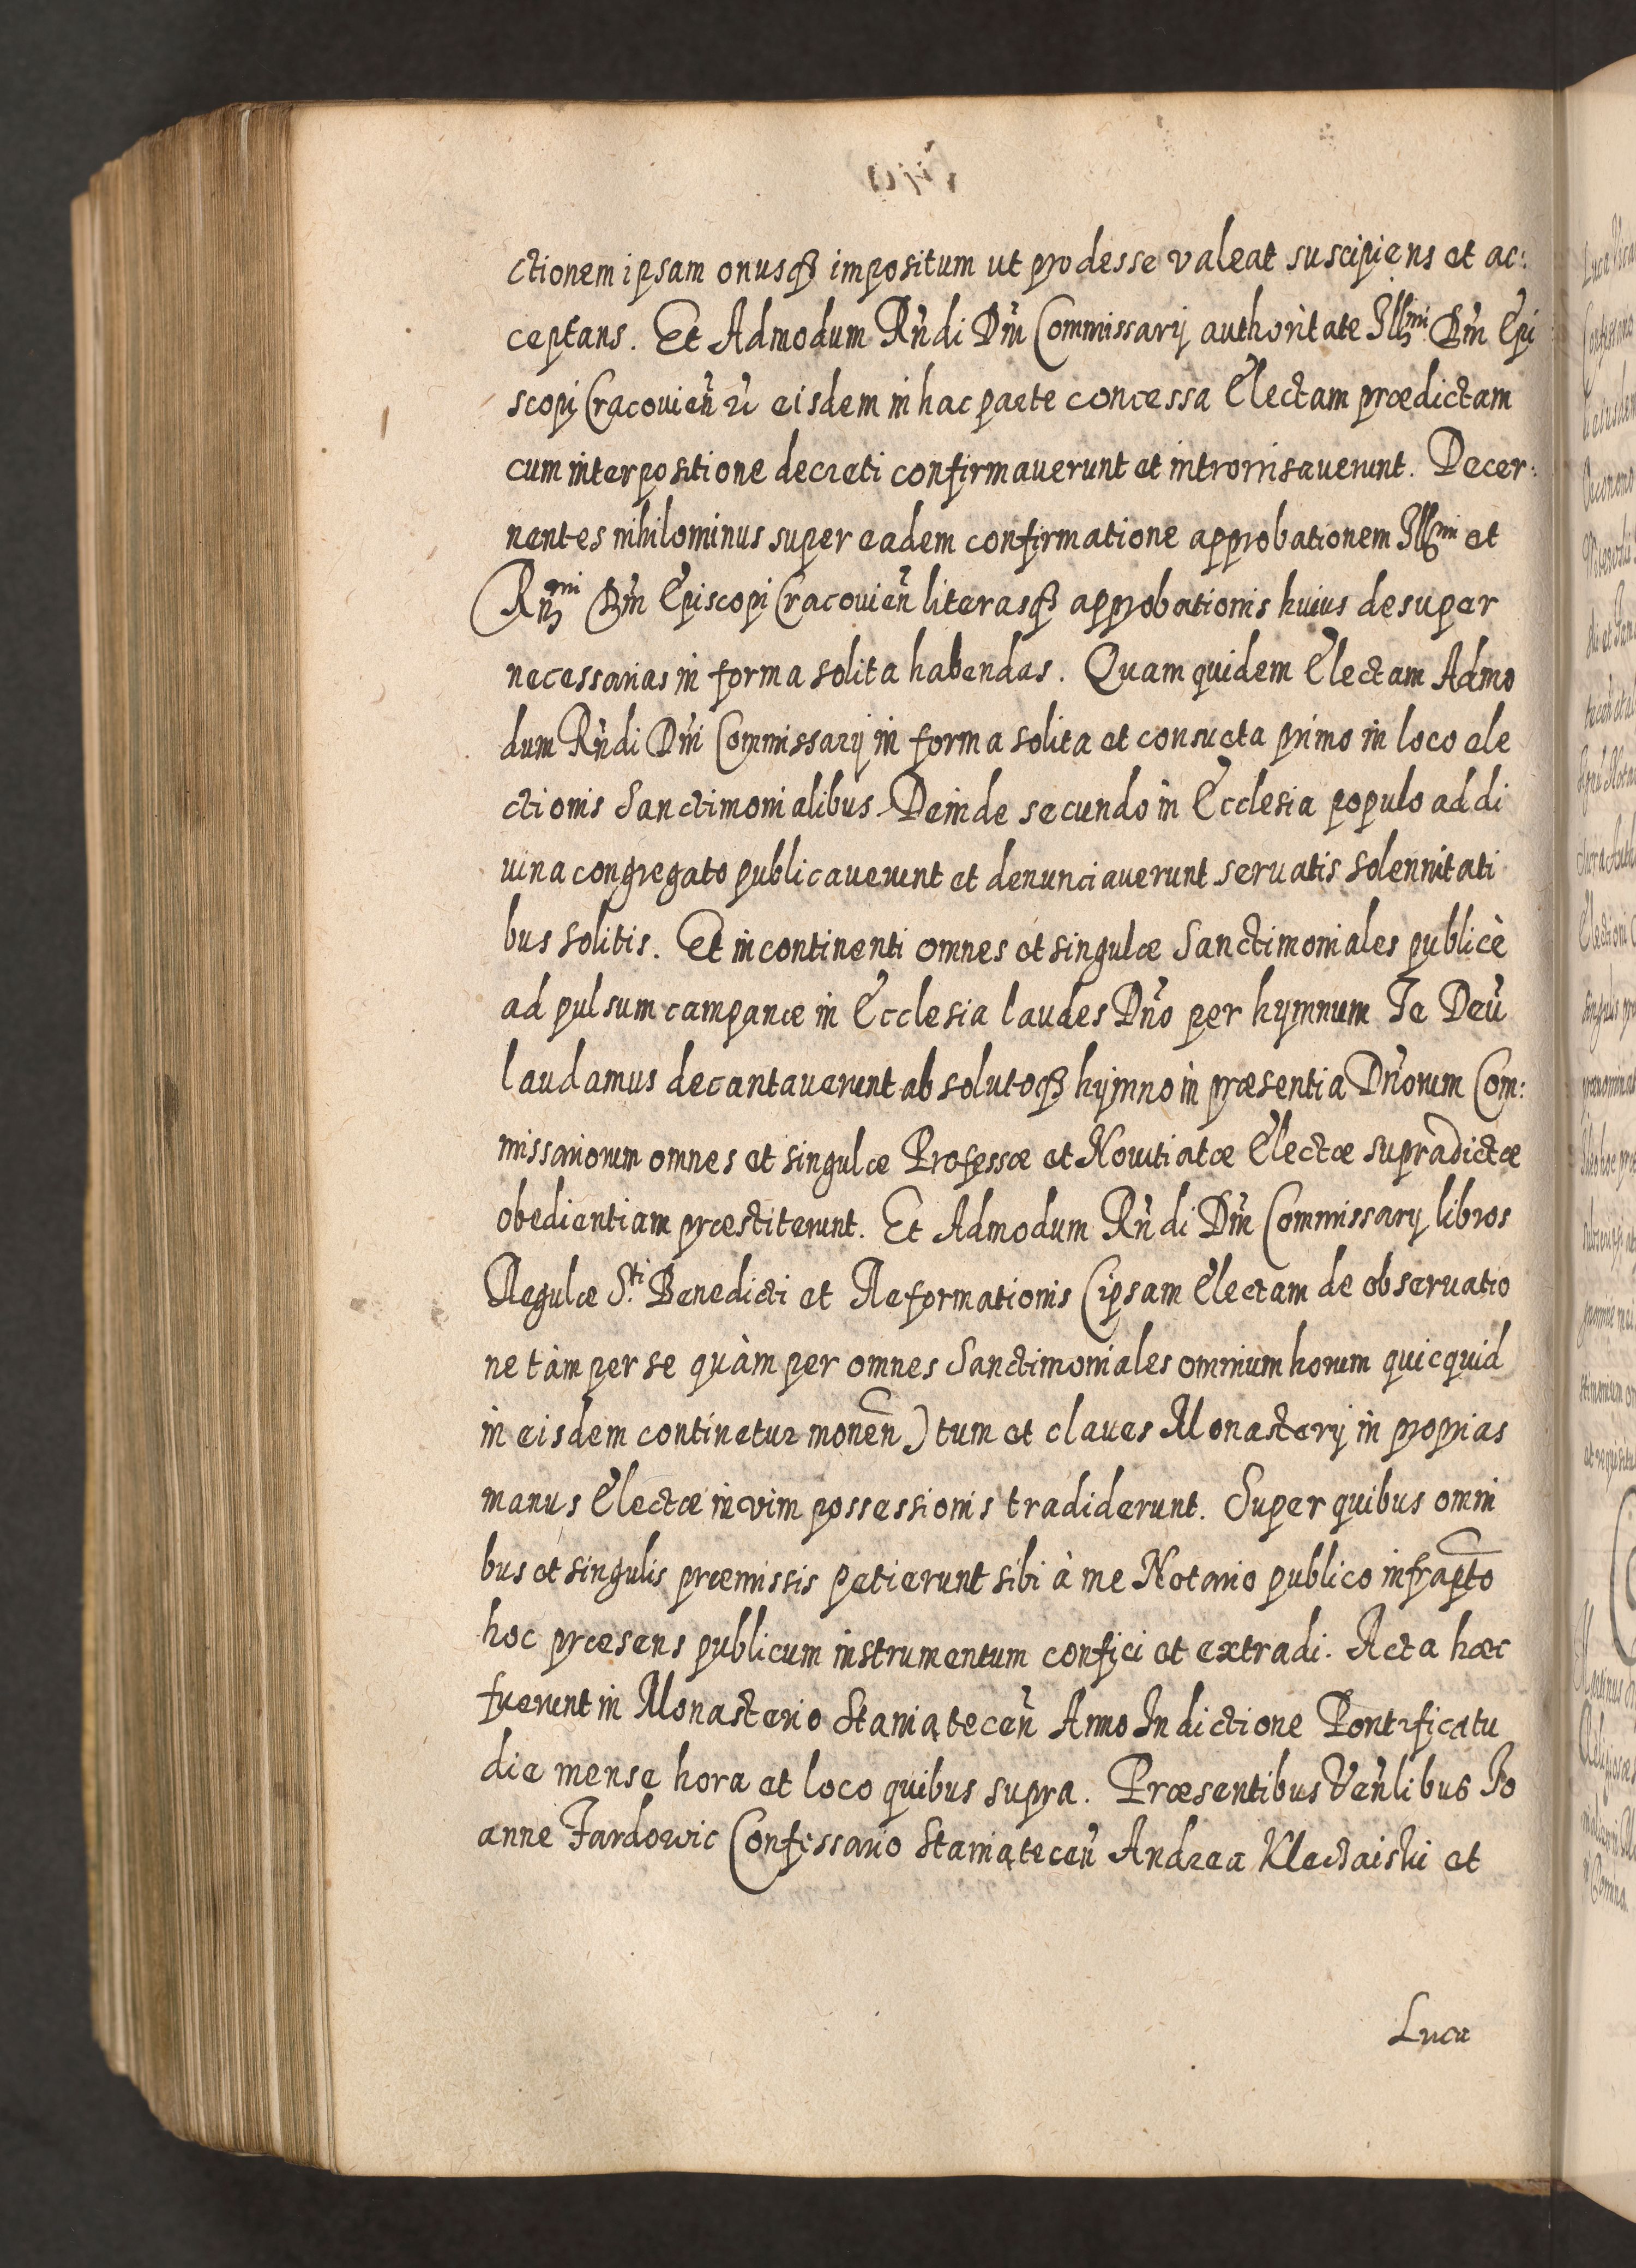 ctionem ipsam onusqꝫ impositum ut prodesse valeat suscipiens et ac:
ceptans. Et Admodum Rñdi Dñi Commissarij authoritate Illmi Dñi Epi
scopi Cracovieñ eisdem in hac parte concessa Electam prædictam
cum interpositione decreti confirmaverunt et introrrisaverunt. Decer:
nentes nihilominus super eadem confirmatione approbationem Illmi et
Rñmi Dñi Episcopi Cracovieñ literasqꝫ approbationis huius desuper
necessarias in forma solita habendas. Quam quidem Electam Admo
dum Rñdi Dñi Commissarij in forma solita et consueta primo in loco ele
ctionis Sanctimonialibus Deinde secundo in Ecclesia populo ad di
uina congregato publicauerunt et denunciauerunt seruatis solennitati
bus solitis. Et incontinenti omnes et singulæ Sanctimoniales publicè
ad pulsum campanæ in Ecclesia laudes Dño per hymnum Te Deũ
laudamus decantauerunt absolutoqꝫ hymno in præsentia Dñorum Com:
missariorum omnes et singulæ Professæ et Nouitiatæ Electæ supradictæ
obedientiam præstiterunt. Et Admodum Rñdi Dñi Commissarij libros
Regulæ Sti Benedicti et Reformationis (ipsam Electam de obseruatio
ne tàm per se quàm per omnes Sanctimoniales omnium horum quicquid
in eisdem continetur moneñ) tum et claues Monasterij in proprias
manus Electæ in vim possessionis tradiderunt. Super quibus omni
bus et singulis præmissis petierunt sibi à me Notario publico infrapto
hoc præsens publicum instrumentum confici et extradi. Acta hæc
fuerunt in Monasterio Staniąteceñ Anno Indictione Pontificatu
die mense hora et loco quibus supra. Præsentibus Veñlibus Jo
anne Fardowic Confessario Staniąteceñ Andrea Klectaiski et
Luca